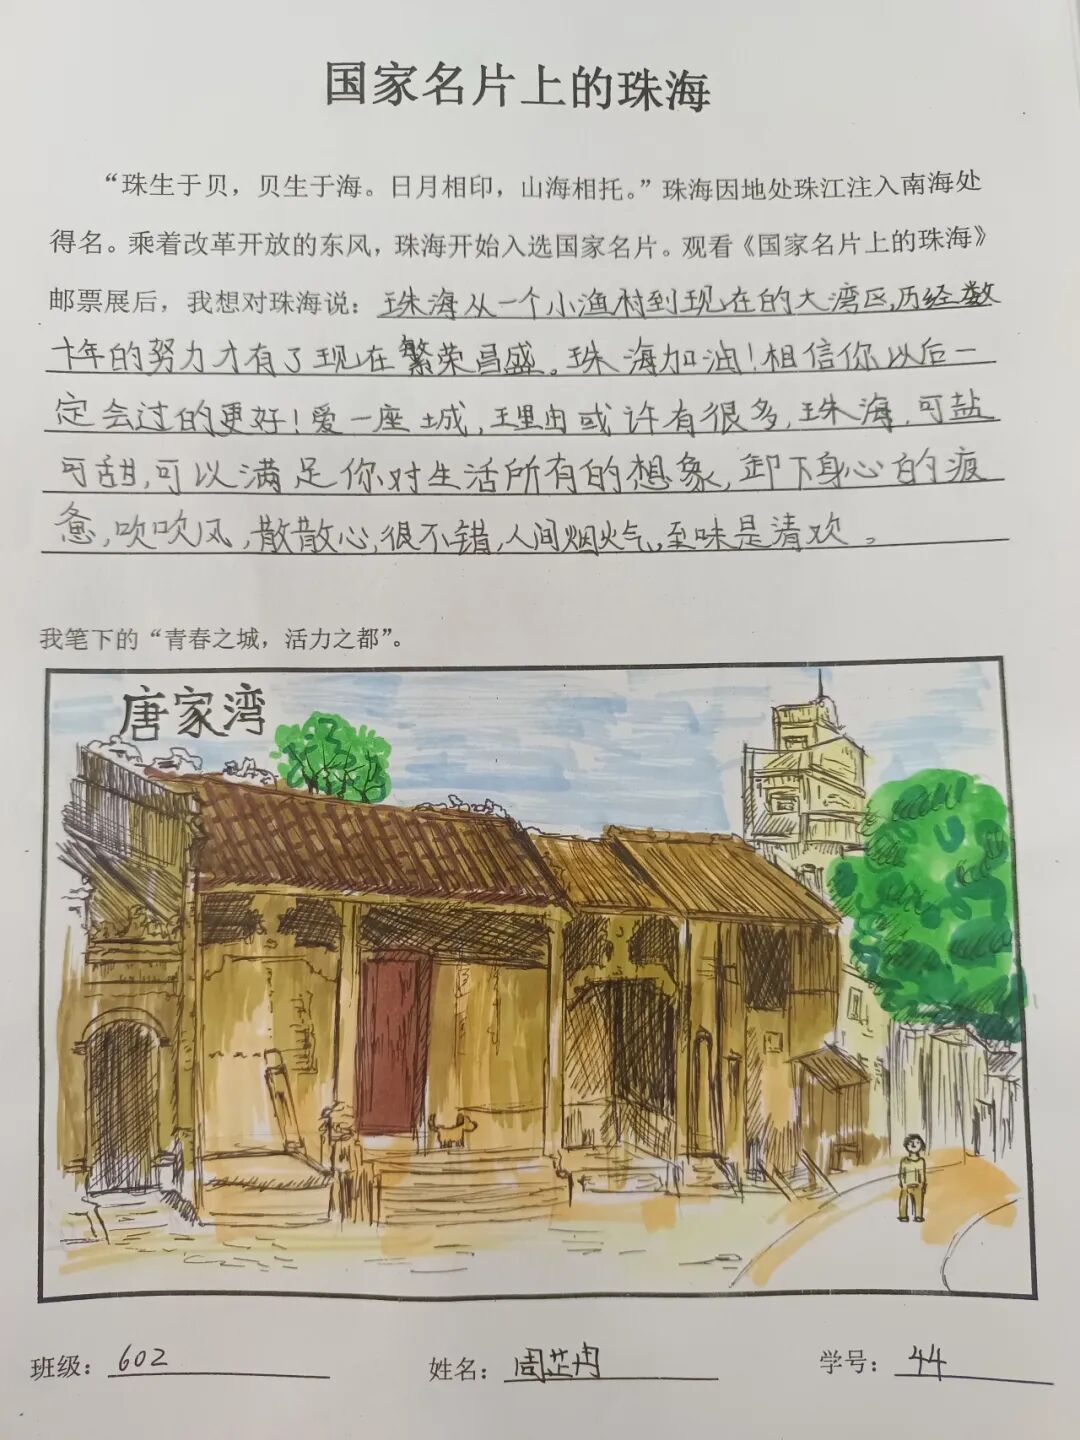 国家名片上的珠海
“珠生于贝，贝生于海。日月相印，山海相托。”珠海因地处珠江注入南海处
得名。乘着改革开放的东风，珠海开始入选国家名片。观看《国家名片上的珠海》
邮票展后，我想对珠海说：珠海从一个小渔村到现在的大湾区,历经数
十年的努力才有了现在繁荣昌盛。珠海加油！相信你以后一
定会过的更好！爱一座城,理由或许有很多,珠海,可盐
可甜,可以满足你对生活所有的想象,卸下身心的疲
惫,吹吹风,散散心,很不错,人间烟火气,至味是清欢。
我笔下的“青春之城，活力之都”。
唐家湾
班级：602 姓名：周芷冉 学号：44